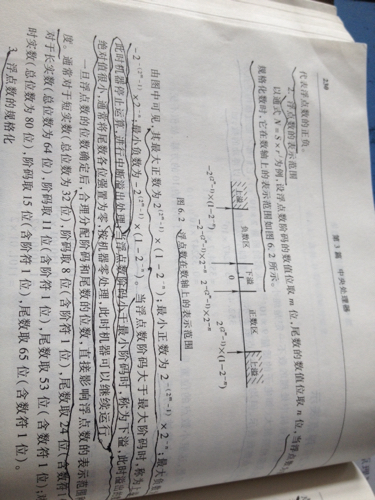 230
第3篇 中央处理器
代表浮点数的正负。
2. 浮点数的表示范围
以通式 N=S×r^j 为例,设浮点数阶码的数值位取 m 位,尾数的数值位取 n 位,当浮点数
规格化数时,它在数轴上的表示范围如图 6.2 所示。
上溢 负数区 下溢 正数区 上溢
0
-2^(2^m-1)×(1-2^-n) -2^-(2^m-1)×2^-n 2^-(2^m-1)×2^-n 2^(2^m-1)×(1-2^-n)
图 6.2 浮点数在数轴上的表示范围
由图中可见,其最大正数为 2^(2^m-1)×(1-2^-n);最小正数为 2^-(2^m-1)×2^-n;最大负数
-2^-(2^m-1)×2^-n;最小负数为 -2^(2^m-1)×(1-2^-n)。当浮点数阶码大于最大阶码时,称为
此时机器停止运算,进行中断溢出处理;当浮点数阶码小于最小阶码时,称为下溢,此时溢出
绝对值很小,通常将尾数各位强置为零,按机器零处理,此时机器可以继续运行。
一旦浮点数的位数确定后,合理分配阶码和尾数的位数,直接影响浮点数的表示范围
度。通常对于短实数(总位数为 32 位),阶码取 8 位(含阶符 1 位),尾数取 24 位(含数符 1
对于长实数(总位数为 64 位),阶码取 11 位(含阶符 1 位),尾数取 53 位(含数符 1 位);
时实数(总位数为 80 位),阶码取 15 位(含阶符 1 位),尾数取 65 位(含数符 1 位)。
3. 浮点数的规格化